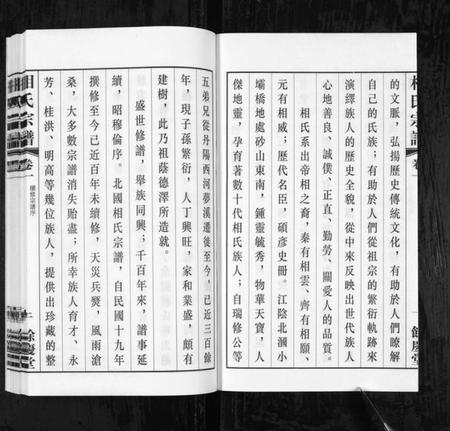 相氏宗譜
卷一
餘慶堂
的文脈，弘揚歷史傳統文化，有助於人們瞭解
自己的氏族；有助於人們從祖宗的繁衍軌跡來
演繹族人的歷史全貌，從中來反映出世代族人
心地善良、誠僕、正直、勤勞、關愛人的品質。
相氏系出帝相之裔，秦有相雲、齊有相願、
元有相威；歷代名臣，碩彥史冊。江陰北漍小
壩橋地處砂山東南，鍾靈毓秀，物華天寶，人
傑地靈，孕育著數十代相氏族人；自瑞修公等
五弟兄從丹陽西河夢溪遷後至今，已近三百餘
年，現子孫繁衍，人丁興旺，家和業盛，頗有
建樹，此乃祖蔭德澤所造就。
盛世修譜，舉族同興；千百年來，譜事延
續，昭穆倫序。北國相氏宗譜，自民國十九年
撰修至今已近百年未續修，天災兵燹，風雨滄
桑，大多數宗譜消失殆盡；所幸族人育才、永
芳、桂洪、明高等幾位族人，提供出珍藏的整
相氏宗譜
卷一
續修宗譜序
二
餘慶堂